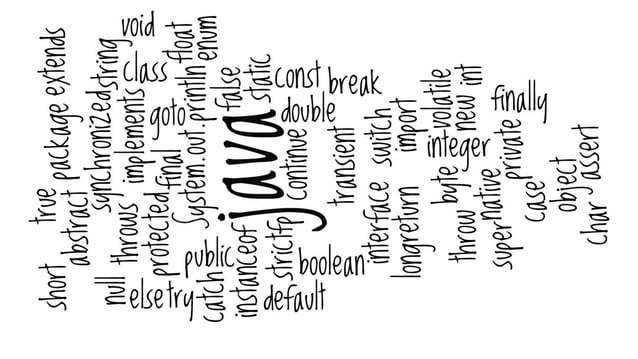 void
float
enum
extends
package
true
string
class
println
false
static
const
break
synchronized
implements
goto
double
out.
System.
java
continue
volatile
new
int
finally
import
switch
integer
private
transient
final
protected
throws
abstract
short
null
else
try
public
catch
instanceof
strictfp
boolean
default
interface
long
return
byte
throw
native
super
case
object
assert
char